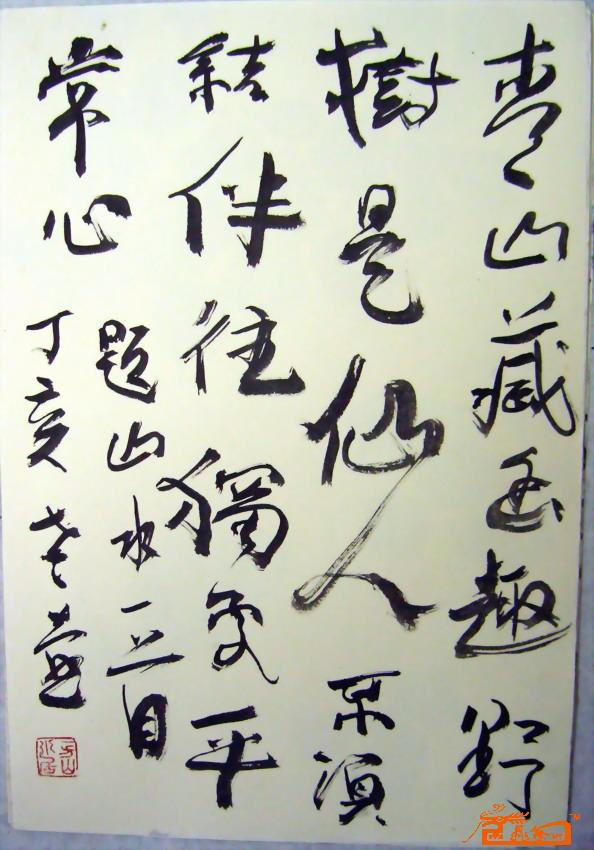 青山藏趣野
樹是仙人不須
結伴往獨平
常心
題山水
丁亥